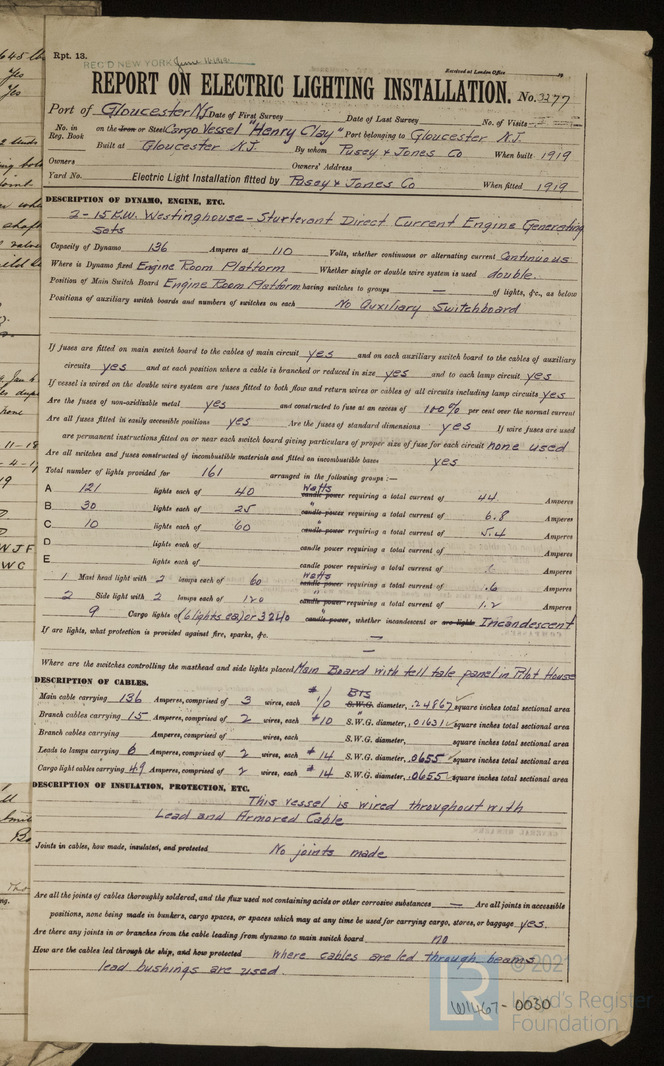 Rpt. 13.
REC'D NEW YORK June
Received at London Office
REPORT ON ELECTRIC LIGHTING INSTALLATION. No. 3277
Port of Gloucester NJ Date of First Survey Date of Last Survey No. of Visits
No. in Reg. Book on the Iron or Steel Cargo Vessel "Henry Clay" Port belonging to Gloucester N.J.
Built at Gloucester N.J. By whom Pusey & Jones Co When built 1919
Owners Owners' Address
Yard No. Electric Light Installation fitted by Pusey & Jones Co When fitted 1919
DESCRIPTION OF DYNAMO, ENGINE, ETC.
2-15 K.W. Westinghouse-Sturtevant Direct Current Engine Generating
Sets
Capacity of Dynamo 136 Amperes at 110 Volts, whether continuous or alternating current Continuous
Where is Dynamo fixed Engine Room Platform Whether single or double wire system is used double.
Position of Main Switch Board Engine Room Platform having switches to groups — of lights, &c., as below
Positions of auxiliary switch boards and numbers of switches on each No Auxiliary Switchboard
If fuses are fitted on main switch board to the cables of main circuit yes and on each auxiliary switch board to the cables of auxiliary
circuits yes and at each position where a cable is branched or reduced in size yes and to each lamp circuit yes
If vessel is wired on the double wire system are fuses fitted to both flow and return wires or cables of all circuits including lamp circuits yes
Are the fuses of non-oxidizable metal yes and constructed to fuse at an excess of 100% per cent over the normal current
Are all fuses fitted in easily accessible positions yes Are the fuses of standard dimensions yes If wire fuses are used
are permanent instructions fitted on or near each switch board giving particulars of proper size of fuse for each circuit none used
Are all switches and fuses constructed of incombustible materials and fitted on incombustible bases yes
Total number of lights provided for 161 arranged in the following groups :—
A 121 lights each of 40 Watts candle power requiring a total current of 44 Amperes
B 30 lights each of 25 " candle power requiring a total current of 6.8 Amperes
C 10 lights each of 60 " candle power requiring a total current of 5.4 Amperes
D lights each of candle power requiring a total current of Amperes
E lights each of candle power requiring a total current of Amperes
1 Mast head light with 2 lamps each of 60 Watts candle power requiring a total current of 1.6 Amperes
2 Side light with 2 lamps each of 120 " candle power requiring a total current of 1.2 Amperes
9 Cargo lights of (6 lights ea) or 3240 " candle power, whether incandescent or arc lights Incandescent
If arc lights, what protection is provided against fire, sparks, &c. —
—
Where are the switches controlling the masthead and side lights placed Main Board with tell tale panel in Pilot House
DESCRIPTION OF CABLES.
Main cable carrying 136 Amperes, comprised of 3 wires, each # 1/0 BTS S.W.G. diameter, .24867 square inches total sectional area
Branch cables carrying 15 Amperes, comprised of 2 wires, each #10 S.W.G. diameter, .01631 square inches total sectional area
Branch cables carrying Amperes, comprised of wires, each S.W.G. diameter, square inches total sectional area
Leads to lamps carrying 6 Amperes, comprised of 2 wires, each #14 S.W.G. diameter, .0655 square inches total sectional area
Cargo light cables carrying 49 Amperes, comprised of 2 wires, each #14 S.W.G. diameter, .0655 square inches total sectional area
DESCRIPTION OF INSULATION, PROTECTION, ETC.
This vessel is wired throughout with
Lead and Armored Cable
Joints in cables, how made, insulated, and protected No joints made
Are all the joints of cables thoroughly soldered, and the flux used not containing acids or other corrosive substances — Are all joints in accessible
positions, none being made in bunkers, cargo spaces, or spaces which may at any time be used for carrying cargo, stores, or baggage yes.
Are there any joints in or branches from the cable leading from dynamo to main switch board no
How are the cables led through the ship, and how protected Where cables are led through beams
lead bushings are used.
© 2021
Lloyd's Register
Foundation
LR
W1467-0030